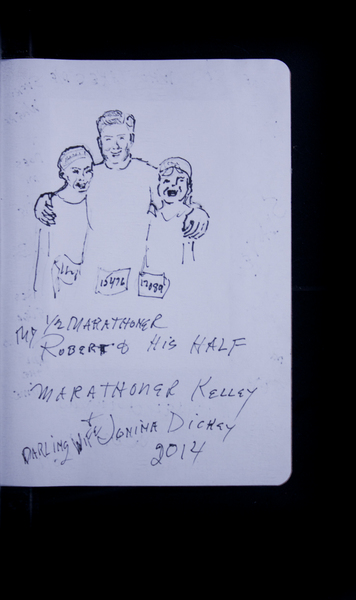 15476 17099
My ½ MARATHONER
ROBERT & HIS HALF
MARATHONER KELLEY
+
DARLING WIFE JONINA DICKEY
2014